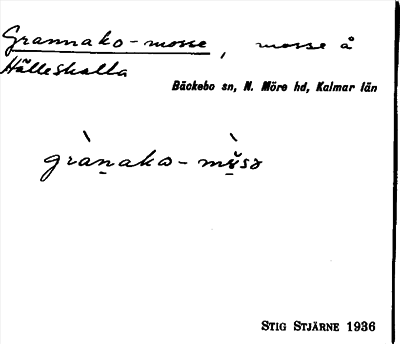 Grannako-mosse, mosse å
Hälleskalla
Bäckebo sn, N. Möre hd, Kalmar län
STIG STJÄRNE 1936